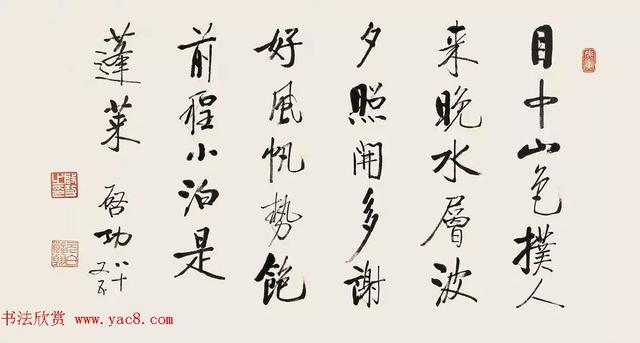 目中山色撲人
来晚水層波
夕照開多謝
好風帆勢飽
前程小泊是
蓬莱
啓功
八十
又
书法欣赏 www.yac8.com